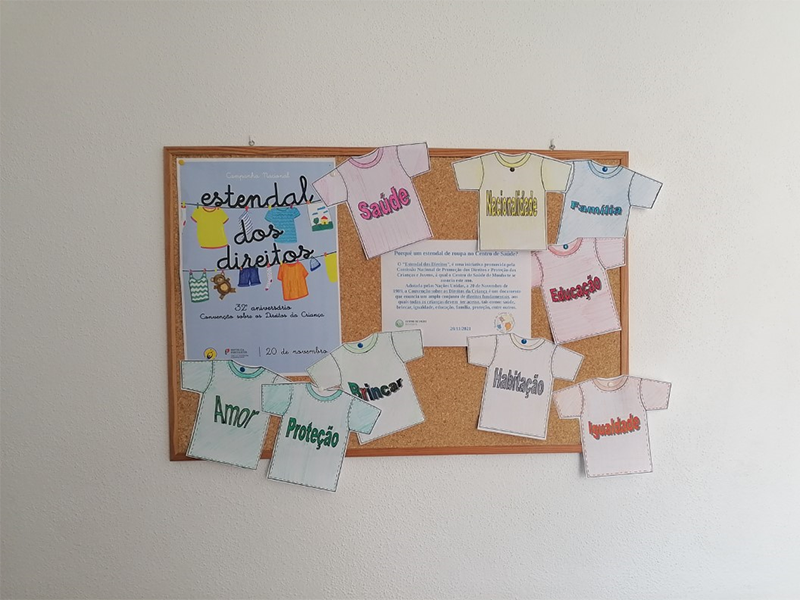 Campanha Nacional
estendal
dos
direitos
32º aniversário
Convenção sobre os Direitos da Criança
20 de novembro
Saúde
Nacionalidade
Família
Porquê um estendal de roupa no Centro de Saúde?
O "Estendal dos Direitos", é uma iniciativa promovida pela
Comissão Nacional de Promoção dos Direitos e Proteção das
Crianças e Jovens, à qual o Centro de Saúde
Adotada pelas Nações Unidas, a 20 de Novembro de
1989, a Convenção sobre os Direitos da Criança, é um documento
que enuncia um amplo conjunto de direitos fundamentais
brincar, igualdade, educação, família, proteção, entre outros.
Educação
Amor
Proteção
Brincar
Habitação
Igualdade